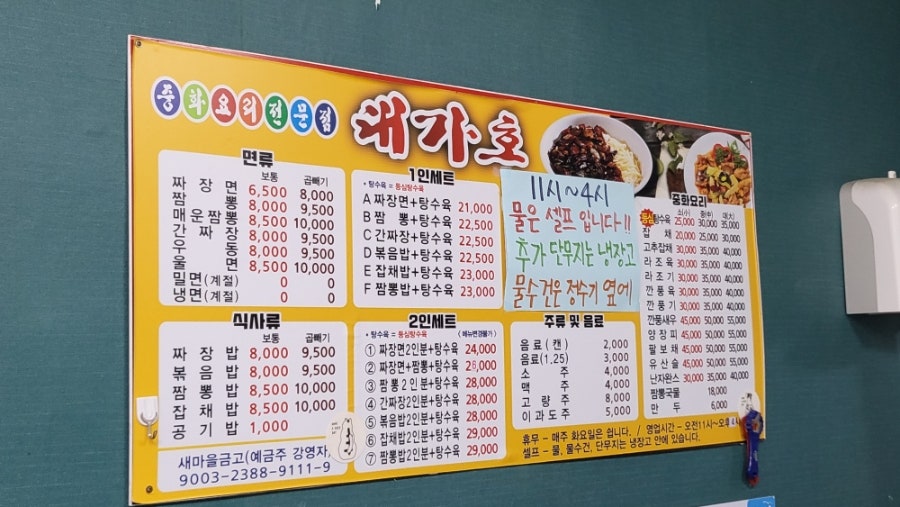 중화요리전문점 대가호
면류
보통 곱빼기
짜장면 6,500 8,000
짬뽕 8,000 9,500
매운짬뽕 8,500 10,000
간짜장 8,000 9,500
우동 8,000 9,500
울면 8,500 10,000
밀면(계절) 0 0
냉면(계절) 0 0
식사류
보통 곱빼기
짜장밥 8,000 9,500
볶음밥 8,000 9,500
짬뽕밥 8,500 10,000
잡채밥 8,500 10,000
공기밥 1,000
새마을금고(예금주 강영자)
9003-2388-9111-9
1인세트
* 탕수육 = 등심탕수육
A 짜장면+탕수육 21,000
B 짬뽕+탕수육 22,500
C 간짜장+탕수육 22,500
D 볶음밥+탕수육 22,500
E 잡채밥+탕수육 23,000
F 짬뽕밥+탕수육 23,000
2인세트
* 탕수육 = 등심탕수육 (메뉴변경불가)
① 짜장면2인분+탕수육 24,000
② 짜장면+짬뽕+탕수육 26,000
③ 짬뽕2인분+탕수육 28,000
④ 간짜장2인분+탕수육 28,000
⑤ 볶음밥2인분+탕수육 28,000
⑥ 잡채밥2인분+탕수육 29,000
⑦ 짬뽕밥2인분+탕수육 29,000
11시~4시
물은 셀프 입니다!!
추가 단무지는 냉장고
물수건은 정수기 옆에
주류 및 음료
음료(캔) 2,000
음료(1.25) 3,000
소주 4,000
맥주 4,000
고량주 8,000
이과도주 5,000
중화요리
소(小) 중(中) 대(大)
등심탕수육 25,000 30,000 35,000
잡채 20,000 25,000 30,000
고추잡채 30,000 35,000 40,000
라조육 30,000 35,000 40,000
라조기 30,000 35,000 40,000
깐풍육 30,000 35,000 40,000
깐풍기 30,000 35,000 40,000
깐풍새우 45,000 50,000 55,000
양장피 45,000 50,000 55,000
팔보채 45,000 50,000 55,000
유산슬 45,000 50,000 55,000
난자완스 30,000 35,000 40,000
짬뽕국물 18,000
만두 6,000
휴무 - 매주 화요일은 쉽니다. / 영업시간 - 오전11시~오후4시
셀프 - 물, 물수건, 단무지는 냉장고 안에 있습니다.